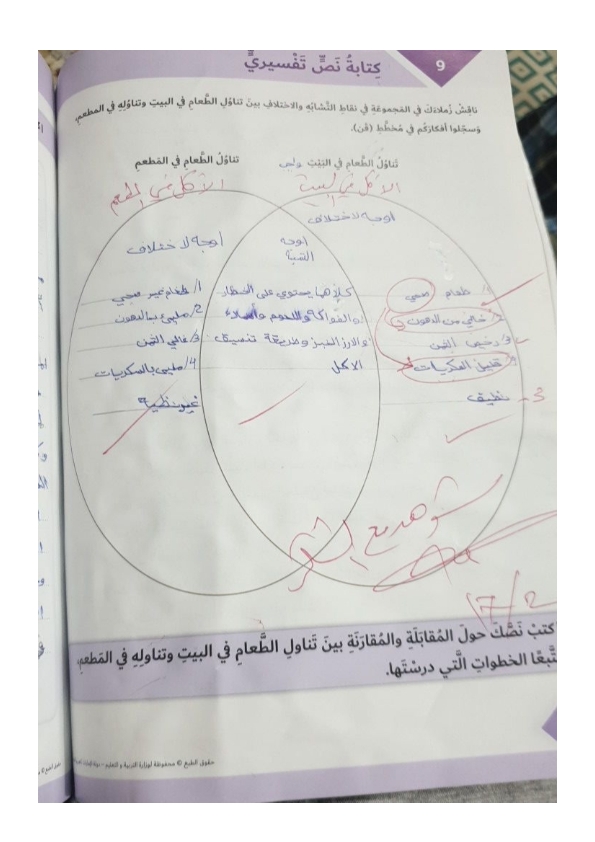 كِتابةُ نَصٍّ تَفْسيريٍّ
9
ناقِشْ زُملاءَكَ في المَجموعَةِ في نقاطِ التَّشابُهِ والاختلافِ بينَ تناوُلِ الطَّعامِ في البيتِ وتناوُلِهِ في المطعمِ،
وَسجِّلوا أفكارَكُم في مُخطَّطِ (ڤن).
تَناوُلُ الطَّعامِ في البَيْتِ
تَناوُلُ الطَّعامِ في المَطعمِ
الأكل في البيت
الأكل في المطعم
اوجه لاختلاف
اوجه
الشبه
اوجه لاختلاف
1/ طعام صحي
2/ خالي من الدهون
3/ رخيص الثمن
4/ قليل السكريات
نظيف
3
كلاهما يحتوي على الخضار
والفواكه واللحوم
والارز الخبز وطريقة تنسيق
الاكل
1/ طعام غير صحي
2/ مليئ بالدهون
3/ غالي الثمن
4/ مليئ بالسكريات
غير نظيف
شوهد مع الشكر
17/2
كتبْ نَصَّكَ حولَ المُقابَلَةِ والمُقارَنَةِ بينَ تَناولِ الطَّعامِ في البيتِ وتناولِهِ في المَطعمِ،
تَّبعًا الخطواتِ الَّتي درسْتَها.
حقوق الطبع © محفوظة لوزارة التربية و التعليم -